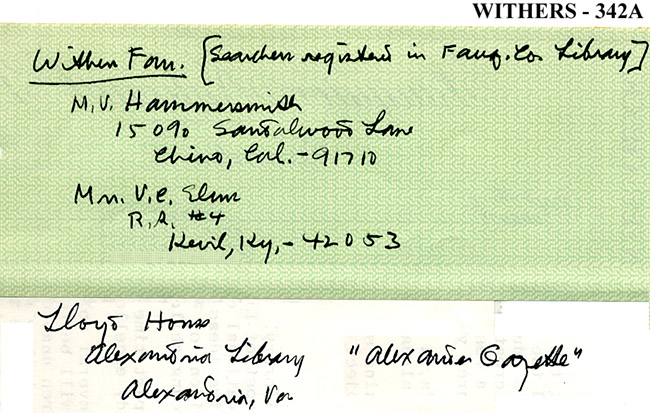 WITHERS - 342A
Withers Fam. [Searchers registered in Fauq. Co. Library]
M.V. Hammersmith
15090 Sandalwood Lane
Chino, Cal. - 91710
Mrs. V.C. Elms
R.R. #4
Kevil, Ky, - 42053
Lloyd House
Alexandria Library "Alexandria Gazette"
Alexandria, Va